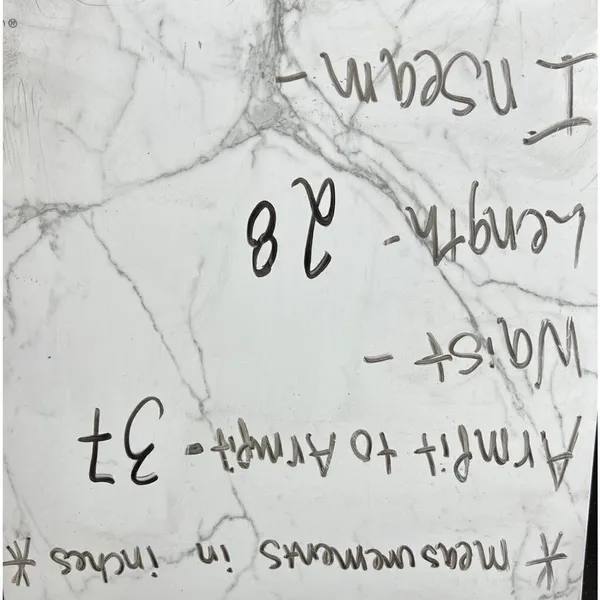 * measurements in inches *
Armpit to Armpit - 37
Waist -
Length - 28
Inseam -